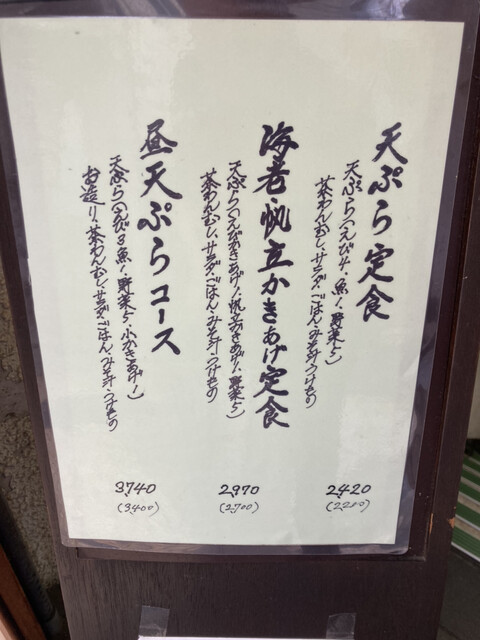 天ぷら定食
天ぷら(えび4・魚1・野菜5)
茶わんむし、サラダ・ごはん・みそ汁・つけもの
2420
(2200)
海老・帆立かきあげ定食
天ぷら(えびかきあげ1・帆立かきあげ1・野菜5)
茶わんむし、サラダ・ごはん・みそ汁・つけもの
2970
(2,700)
昼天ぷらコース
天ぷら(えび3魚1・野菜5・小かきあげ1)
お造り・茶わんむし、サラダ・ごはん、みそ汁・つけもの
3,740
(3,400)